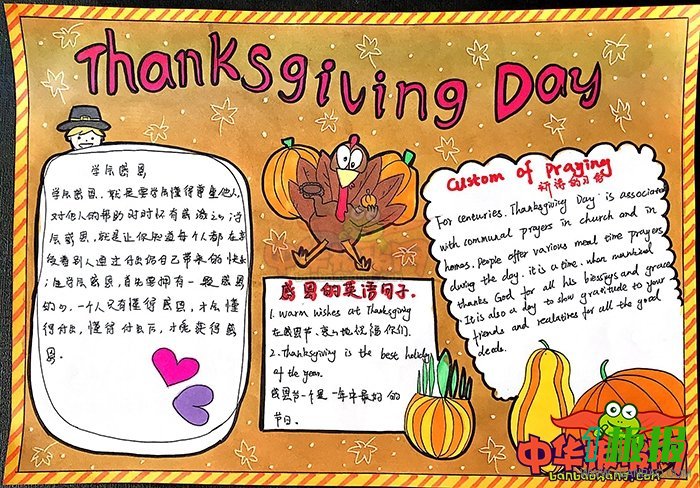 Thanksgiving Day
学会感恩
学会感恩，就是要学会懂得尊重他人,
对他人的帮助时时怀有感激之
感恩，就是让你知道每个人都在
着别人通过付出给自己带来的快
学会感恩，首先要拥有一颗感恩
的心，一个人只有懂得感恩，才会懂
得付出，懂得付出后，才能获得感
恩.
感恩的英语句子.
1. warm wishes at Thanksgiving
在感恩节，衷心地祝福你们.
2. Thanksgiving is the best holiday
of the year.
感恩节一个是一年中最好的
节日.
Custom of Praying
祈祷的习俗
For centuries. Thanksgiving Day is associated
with communal prayers in church and in
homes. People offer various meal time prayers
during the day. it is a time. when mankind
thanks God for all his blessings and grace
It is also a day to show gratitude to your
friends and realatires for all the good
deeds.
中华
报